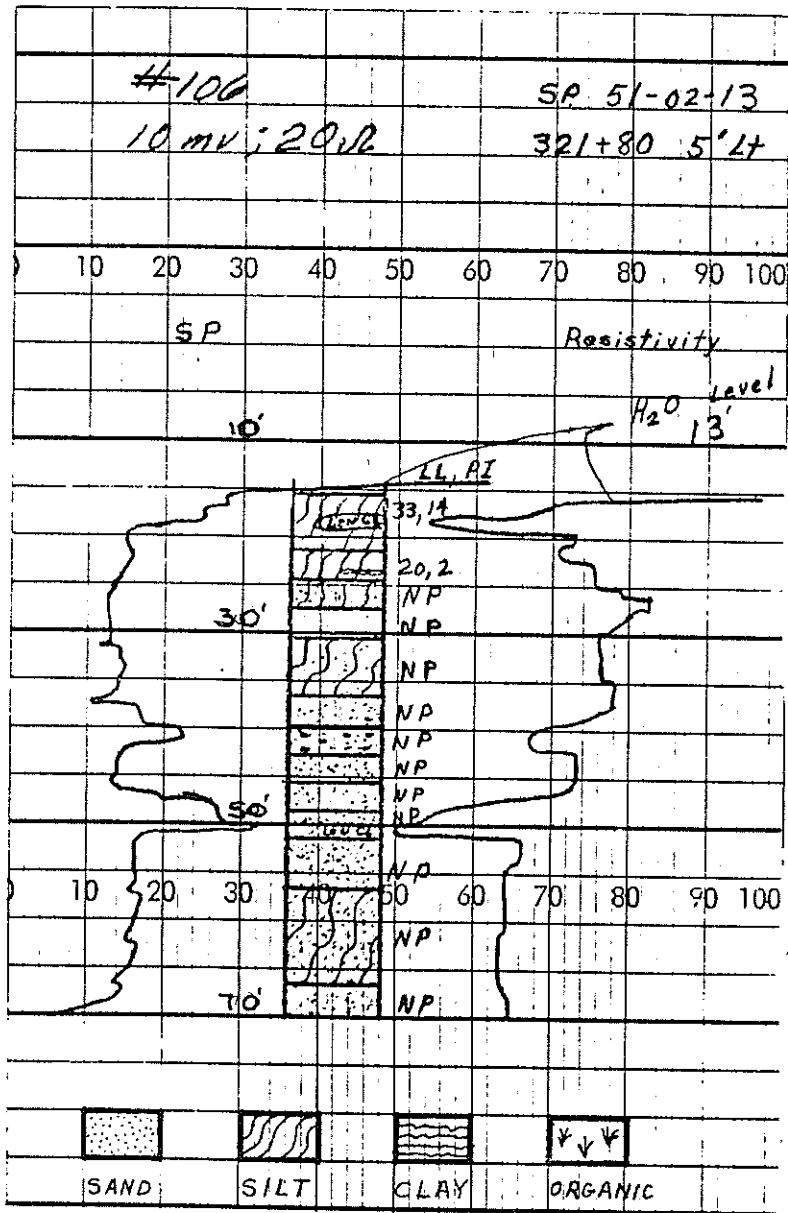 #106
SP 51-02-13
10 mv; 20Ω
321+80 5' Lt
10 20 30 40 50 60 70 80 90 100
SP
Resistivity
H₂O Level
13'
10'
LL, PI
33, 14
20, 2
NP
30'
NP
NP
NP
NP
NP
NP
50'
NP
NP
10 20 30 40 50 60 70 80 90 100
NP
70'
NP
SAND SILT CLAY ORGANIC